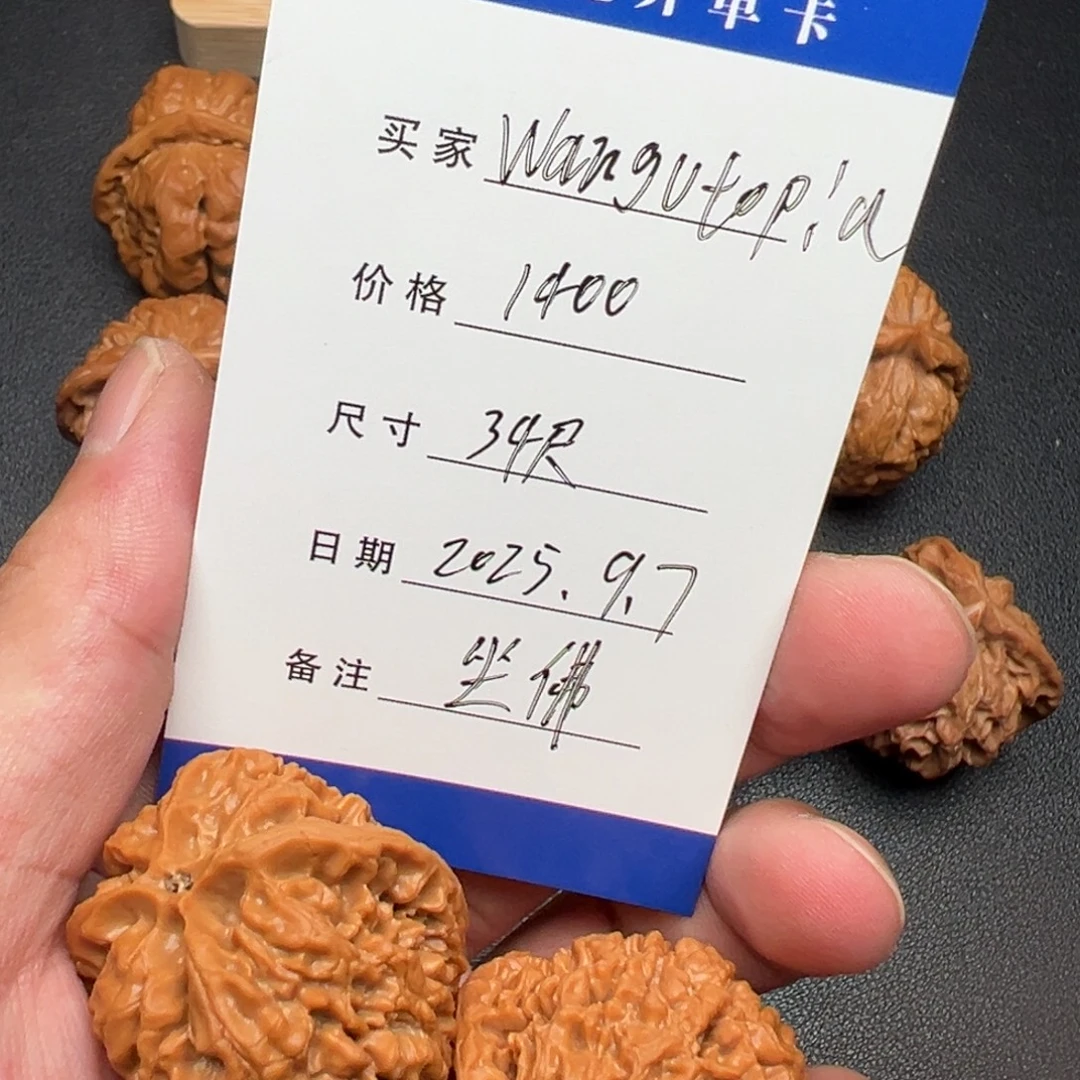 单卡
买家 Wangutopia
价格 1400
尺寸 34尺
日期 2025.9.7
备注 坐佛